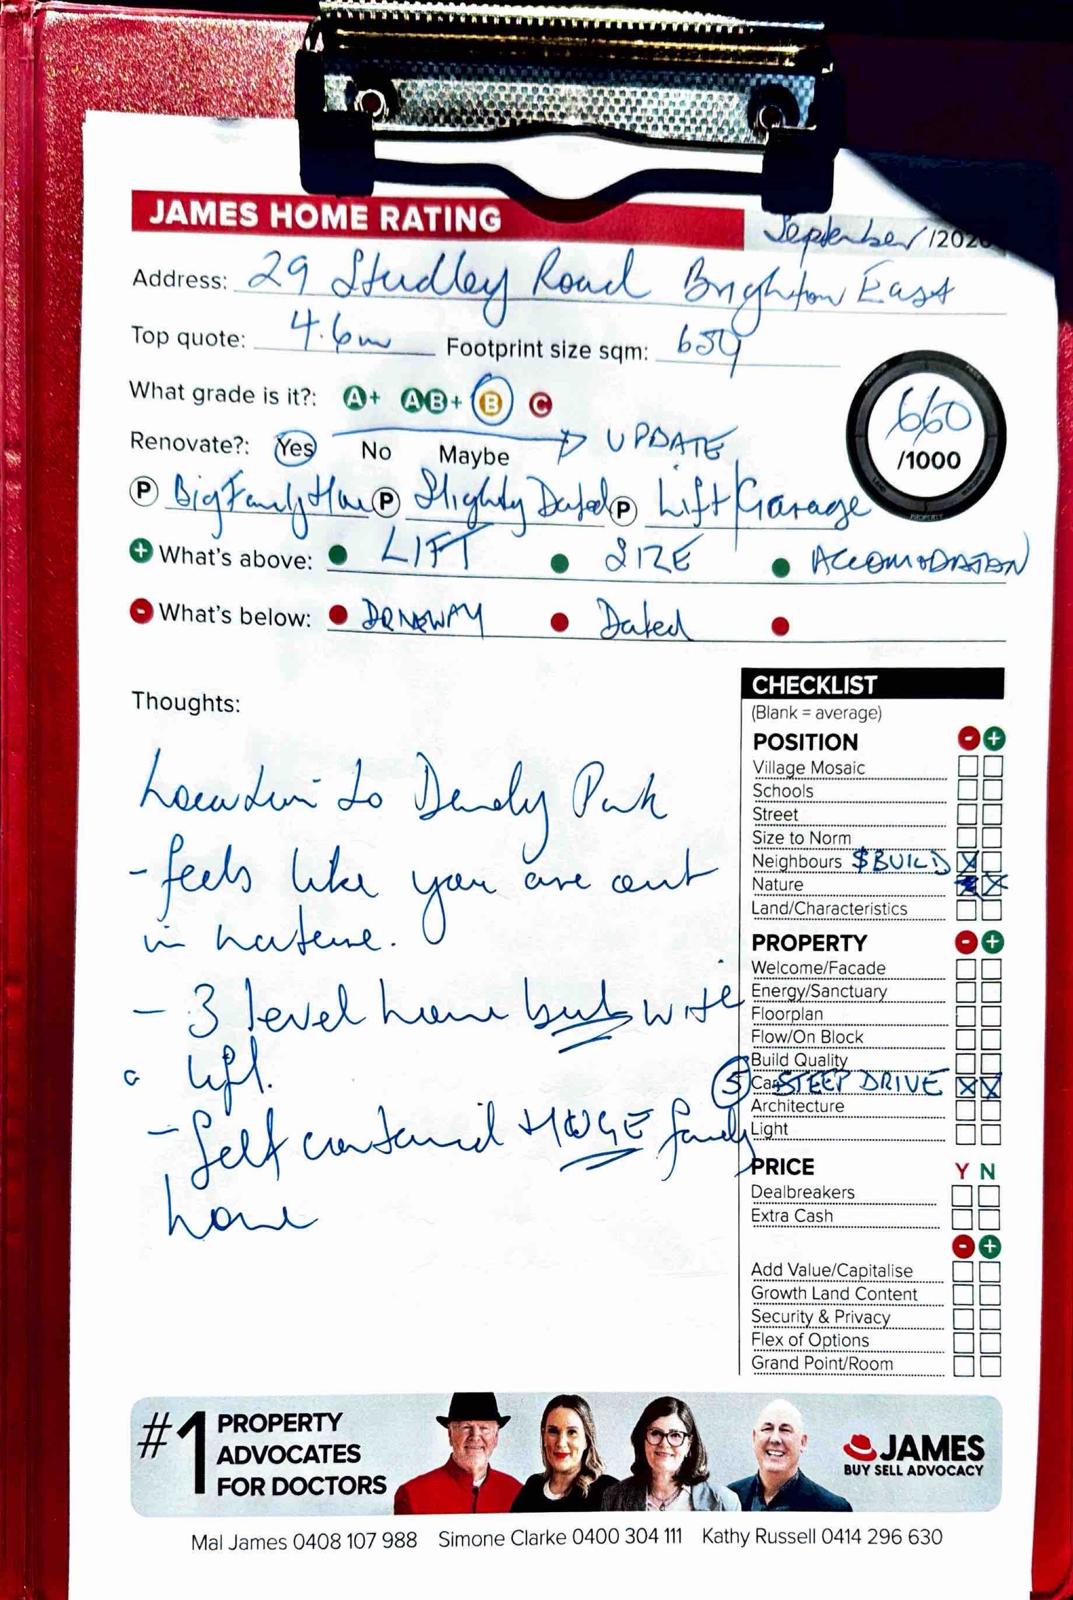 JAMES HOME RATING
September /202
Address: 29 Studley Road Brighton East
Top quote: 4.6m Footprint size sqm: 659
What grade is it?: A+ AB+ B C
660 /1000
Renovate?: Yes No Maybe → UPDATE
P Big Family Home P Slightly Dated P Lift/Garage
+ What's above: LIFT SIZE ACCOMODATION
- What's below: DRIVEWAY Dated
Thoughts:
Location to Dendy Park
- feels like you are out
in nature.
- 3 level home but with
a lift.
- Self contained HUGE family
home
CHECKLIST
(Blank = average)
POSITION - +
Village Mosaic
Schools
Street
Size to Norm
Neighbours $BUILD X
Nature X
Land/Characteristics
PROPERTY - +
Welcome/Facade
Energy/Sanctuary
Floorplan
Flow/On Block
Build Quality
5 Ca STEEP DRIVE X X
Architecture
Light
PRICE Y N
Dealbreakers
Extra Cash
- +
Add Value/Capitalise
Growth Land Content
Security & Privacy
Flex of Options
Grand Point/Room
#1 PROPERTY
ADVOCATES
FOR DOCTORS
JAMES
BUY SELL ADVOCACY
Mal James 0408 107 988 Simone Clarke 0400 304 111 Kathy Russell 0414 296 630